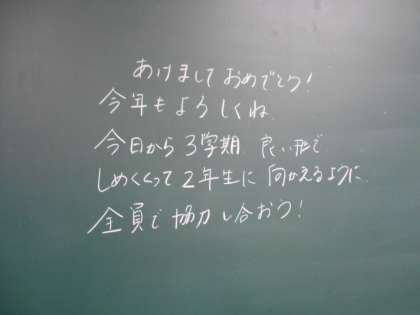 あけましておめでとう!
今年もよろしくね
今日から3学期 良い形で
しめくくって2年生に向かえるように
全員で協力し合おう!